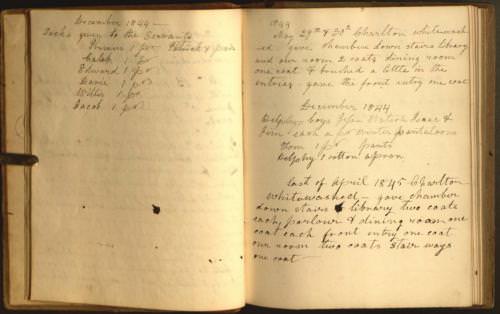 December 1844 —
Socks given to the Servants
1 pr Patrick 4 pairs
Caleb 1 pr
Edward 1 pr
Davie 1 pr
1 pr
Jacob 1 pr
1844
May 29th & 30th Charlton whitewash
ed gave chamber down stairs library
and our room 2 coats dining room
one coat & touched a little in the
entries gave the front entry one coat
December 1844
Delphy boys Isaac &
Jim each a pr winter pantaloons
Tom 1 pr pants
Delphy 1 cotton apron
last of April 1845 Charlton
whitewashed — gave chamber
down stairs & library two coats
each, parlour & dining room one
coat each front entry one coat
our room two coats stair ways
one coat —